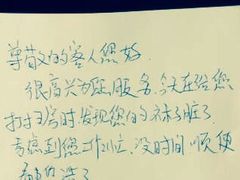 尊敬的客人您好
很高兴为您服务,今天在给您
打扫房时发现您的袜子脏了
考虑到您工作忙,没时间顺便
洗了